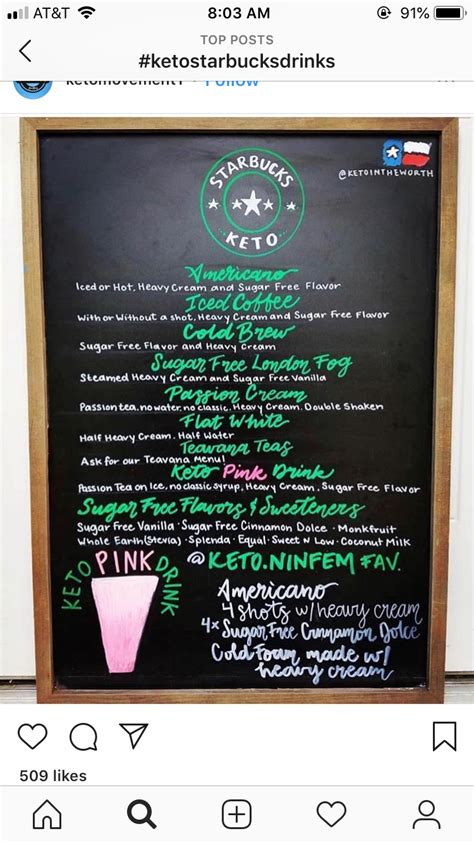 AT&T 8:03 AM 91%
TOP POSTS
#ketostarbucksdrinks
ketomovement1 · Follow
STARBUCKS
KETO
@KETOINTHEWORTH
Americano
Iced or Hot, Heavy Cream and Sugar Free Flavor
Iced Coffee
With or Without a shot, Heavy Cream and Sugar Free Flavor
Cold Brew
Sugar Free Flavor and Heavy Cream
Sugar Free London Fog
Steamed Heavy Cream and Sugar Free Vanilla
Passion Cream
Passion tea, no water, no classic, Heavy Cream, Double Shaken
Flat White
Half Heavy Cream, Half Water
Teavana Teas
Ask for our Teavana Menu!
Keto Pink Drink
Passion Tea on Ice, no classic syrup, Heavy Cream, Sugar Free Flavor
Sugar Free Flavors & Sweeteners
Sugar Free Vanilla · Sugar Free Cinnamon Dolce · Monkfruit
Whole Earth (Stevia) · Splenda · Equal · Sweet N Low · Coconut Milk
KETO PINK DRINK
@KETO.NINFEM FAV.
Americano
4 shots w/heavy cream
4x Sugar Free Cinnamon Dolce
Cold Foam made w/
heavy cream
509 likes